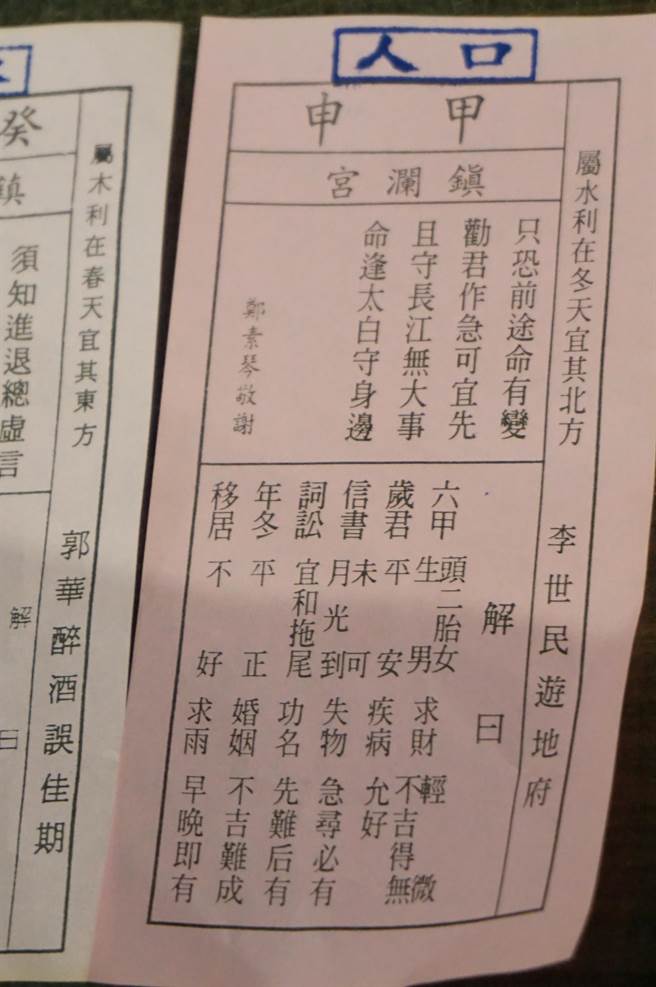 人口
甲申
鎮瀾宮
屬水利在冬天宜其北方 李世民遊地府
只恐前途命有變
勸君作急可宜先
且守長江無大事
命逢太白守身邊
鄭素琴敬謝
解曰
六甲 頭二胎女 生男
歲君 平安
信書 未可 月光到
詞訟 宜和拖尾
年冬 平正
移居 不好
求財 輕微 不吉得無
疾病 允好
失物 急尋必有
功名 先難后有
婚姻 不吉難成
求雨 早晚即有
癸
鎮
屬木利在春天宜其東方 郭華醉酒誤佳期
須知進退總虛言
解曰